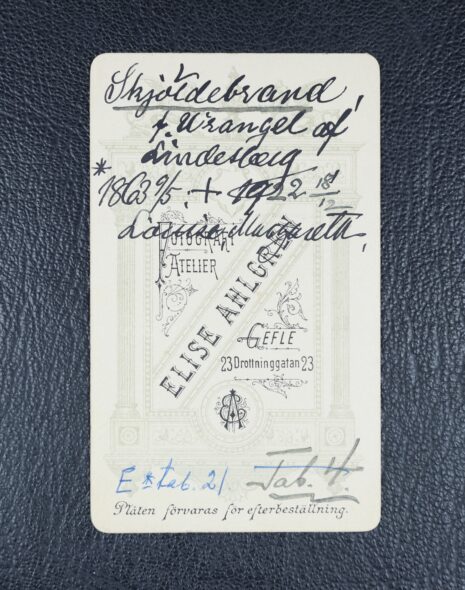 Skjöldebrand,
f. Wrangel af
Lindesberg
* 1863 9/5. + 1922 18/12
Louise, Margareth,
FOTOGRAFI
ATELIER
ELISE AHLGREN
GEFLE
23 Drottninggatan 23
E * tab. 21 Tab. 4.
Plåten förvaras för efterbeställning.